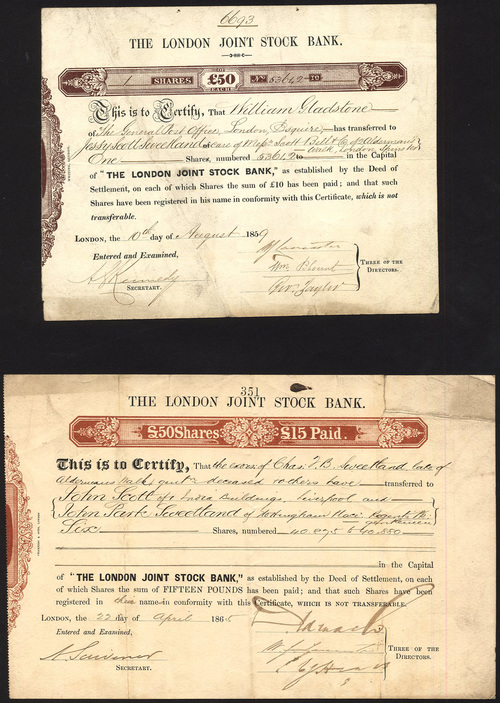 6693
THE LONDON JOINT STOCK BANK.
1 SHARES OF £50 EACH. No 53649 TO
This is to Certify, That William Gladstone
of The General Post Office, London, Esquire, has transferred to
Jessy Scott Sweetland of care of Messrs Scott Bell & Co of Alderman
Walk, London Spinster
One Shares, numbered 53649 to in the Capital
of "THE LONDON JOINT STOCK BANK," as established by the Deed of
Settlement, on each of which Shares the sum of £10 has been paid; and that such
Shares have been registered in his name in conformity with this Certificate, which is not
transferable.
LONDON, the 10th day of August 1859
Entered and Examined,
Kennedy
SECRETARY.
Wm Blount
Geo. Taylor
THREE OF THE
DIRECTORS.
351
THE LONDON JOINT STOCK BANK.
£50 Shares £15 Paid.
This is to Certify, That the exors of Chas. F. B. Sweetland, late of
Aldermans Walk, gent deceased others have transferred to
John Scott of 1 India Buildings, Liverpool and
John Park Sweetland of Nottingham Place Regents Pk
gentlemen
Six Shares, numbered 40,875 to 40,880
in the Capital
of "THE LONDON JOINT STOCK BANK," as established by the Deed of Settlement, on each
of which Shares the sum of FIFTEEN POUNDS has been paid; and that such Shares have been
registered in their name in conformity with this Certificate, WHICH IS NOT TRANSFERABLE.
LONDON, the 22 day of April 1865
Entered and Examined,
SECRETARY.
THREE OF THE
DIRECTORS.